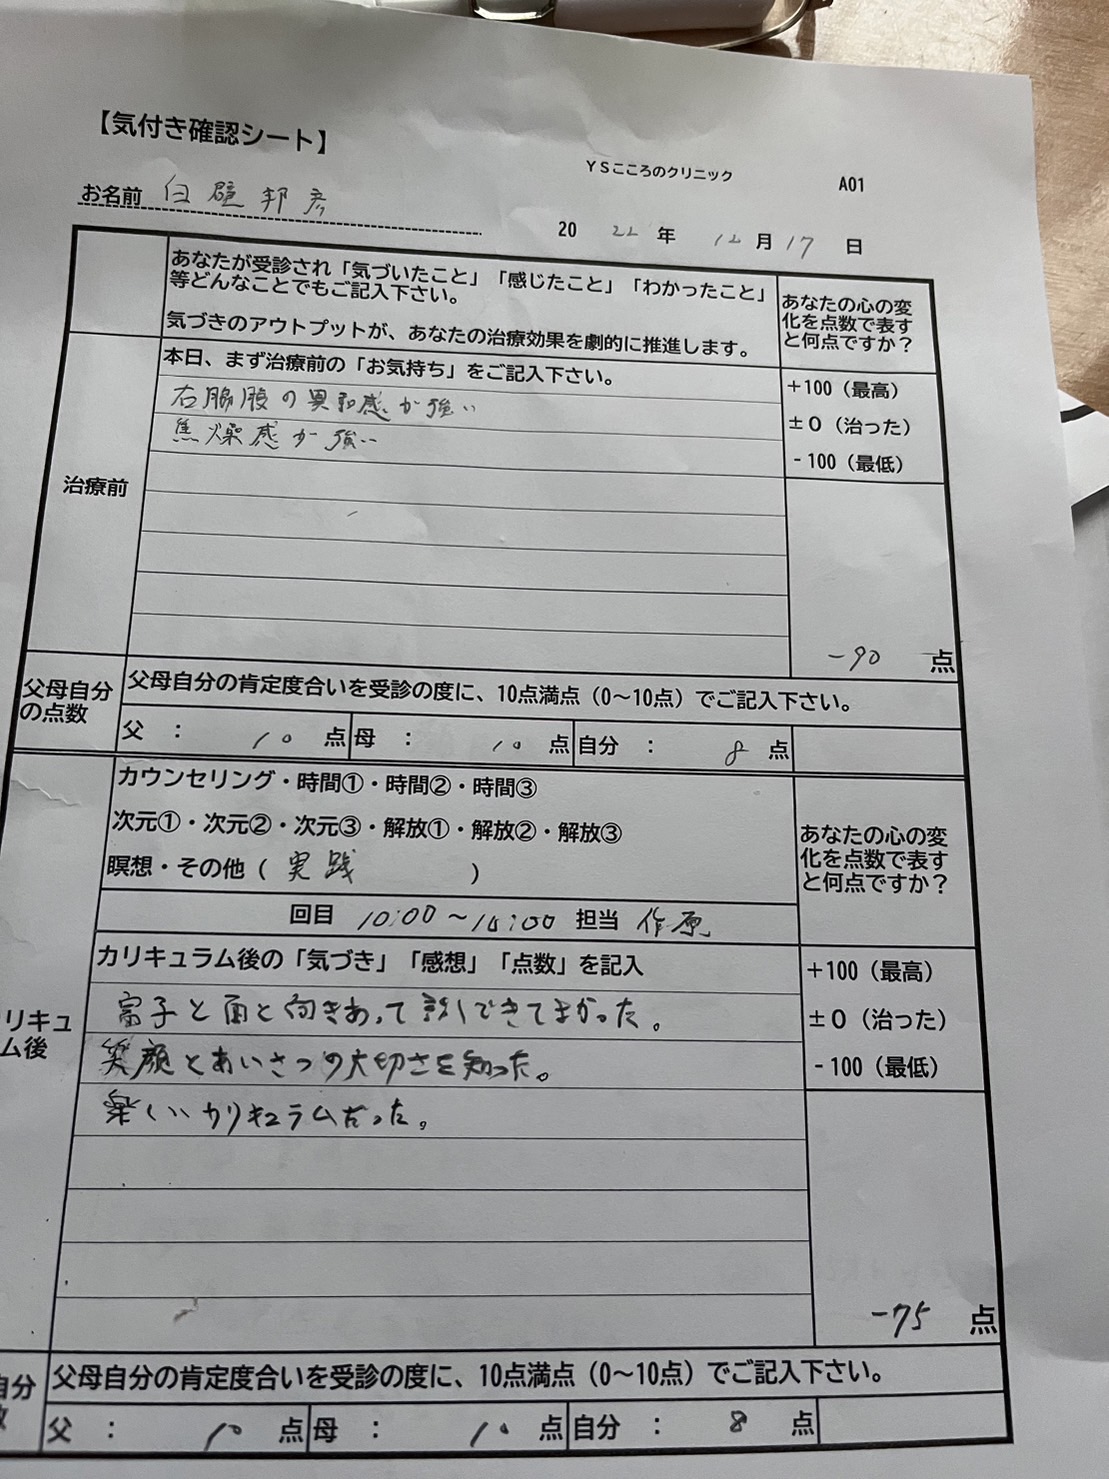 【気付き確認シート】
YSこころのクリニック
A01
お名前 白壁邦彦
2022年 12月17日
あなたが受診され「気づいたこと」「感じたこと」「わかったこと」
等どんなことでもご記入下さい。
気づきのアウトプットが、あなたの治療効果を劇的に推進します。
あなたの心の変
化を点数で表す
と何点ですか？
本日、まず治療前の「お気持ち」をご記入下さい。
+100（最高）
±0（治った）
-100（最低）
治療前
右脇腹の異和感が強い
焦燥感が強い
-90 点
父母自分
の点数
父母自分の肯定度合いを受診の度に、10点満点（0～10点）でご記入下さい。
父 ： 10 点 母 ： 10 点 自分 ： 8 点
カウンセリング・時間①・時間②・時間③
次元①・次元②・次元③・解放①・解放②・解放③
瞑想・その他（ 実践 ）
あなたの心の変
化を点数で表す
と何点ですか？
回目 10:00～ 担当 作原
カリキュラム後の「気づき」「感想」「点数」を記入
+100（最高）
±0（治った）
-100（最低）
リキュ
ム後
富子と面と向きあって話しできてよかった。
笑顔とあいさつの大切さを知った。
楽しいカリキュラムだった。
-75 点
自分
数
父母自分の肯定度合いを受診の度に、10点満点（0～10点）でご記入下さい。
父 ： 10 点 母 ： 10 点 自分 ： 8 点